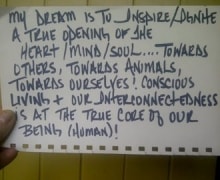 MY DREAM IS TO INSPIRE/IGNITE
A TRUE OPENING OF THE
HEART/MIND/SOUL.... TOWARDS
OTHERS, TOWARDS ANIMALS,
TOWARDS OURSELVES! CONSCIOUS
LIVING + OUR INTERCONNECTEDNESS
IS AT THE TRUE CORE OF OUR
BEING (HUMAN)!